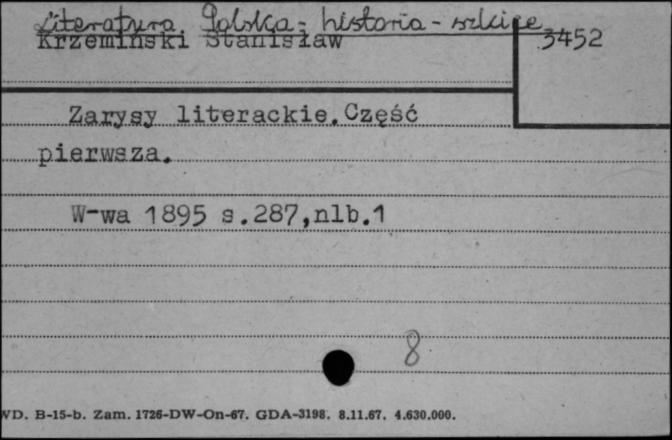 Literatura Polska - historia - szkice
Krzemiński Stanisław
3452
Zarysy literackie. Część
pierwsza.
W-wa 1895 s.287,nlb.1
8
WD. B-15-b. Zam. 1726-DW-On-67. GDA-3198. 8.11.67. 4.630.000.